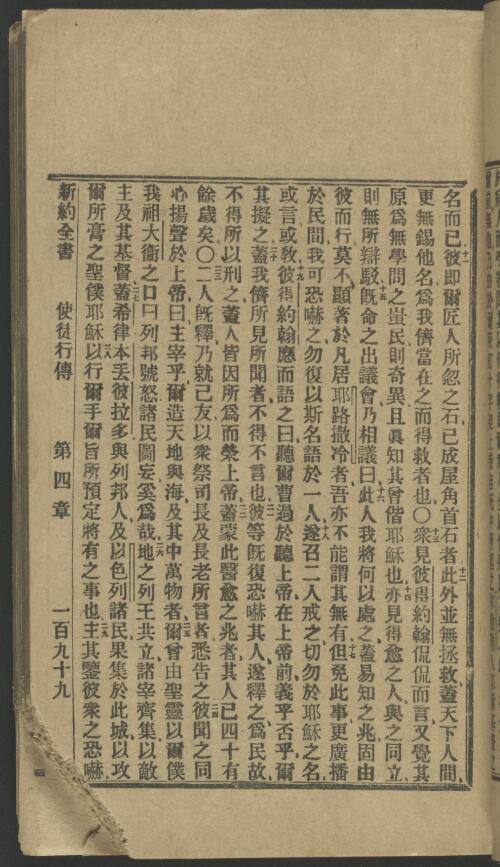 名而已彼卽爾匠人所忽之石已成屋角首石者此外並無拯救蓋天下人間
更無錫他名爲我儕當在之而得救者也〇衆見彼得約翰侃侃而言又覺其
原爲無學問之蚩民則奇異且眞知其曾偕耶穌也亦見得愈之人與之同立
則無所辯駁旣命之出議會乃相議曰此人我將何以處之蓋易知之兆固由
彼而行莫不顯著於凡居耶路撒冷者吾亦不能謂其無有但免此事更廣播
於民間我可恐嚇之勿復以斯名語於一人遂召二人戒之切勿於耶穌之名
或言或敎彼得約翰應而語之曰聽爾曹過於聽上帝在上帝前義乎否乎爾
其擬之蓋我儕所見所聞者不得不言也彼等旣復恐嚇其人遂釋之爲民故
不得所以刑之蓋人皆因所爲而榮上帝蓋蒙此醫愈之兆者其人已四十有
餘歲矣〇二人旣釋乃就己友以衆祭司長及長老所言者悉告之彼聞之同
心揚聲於上帝曰主宰乎爾造天地與海及其中萬物者爾曾由聖靈以爾僕
我祖大衞之口曰列邦號怒諸民圖妄奚爲哉地之列王共立諸宰齊集以敵
主及其基督蓋希律本丟彼拉多與列邦人及以色列諸民果集於此城以攻
爾所膏之聖僕耶穌以行爾手爾旨所預定將有之事也主其鑒彼衆之恐嚇
新約全書 使徒行傳 第四章 一百九十九